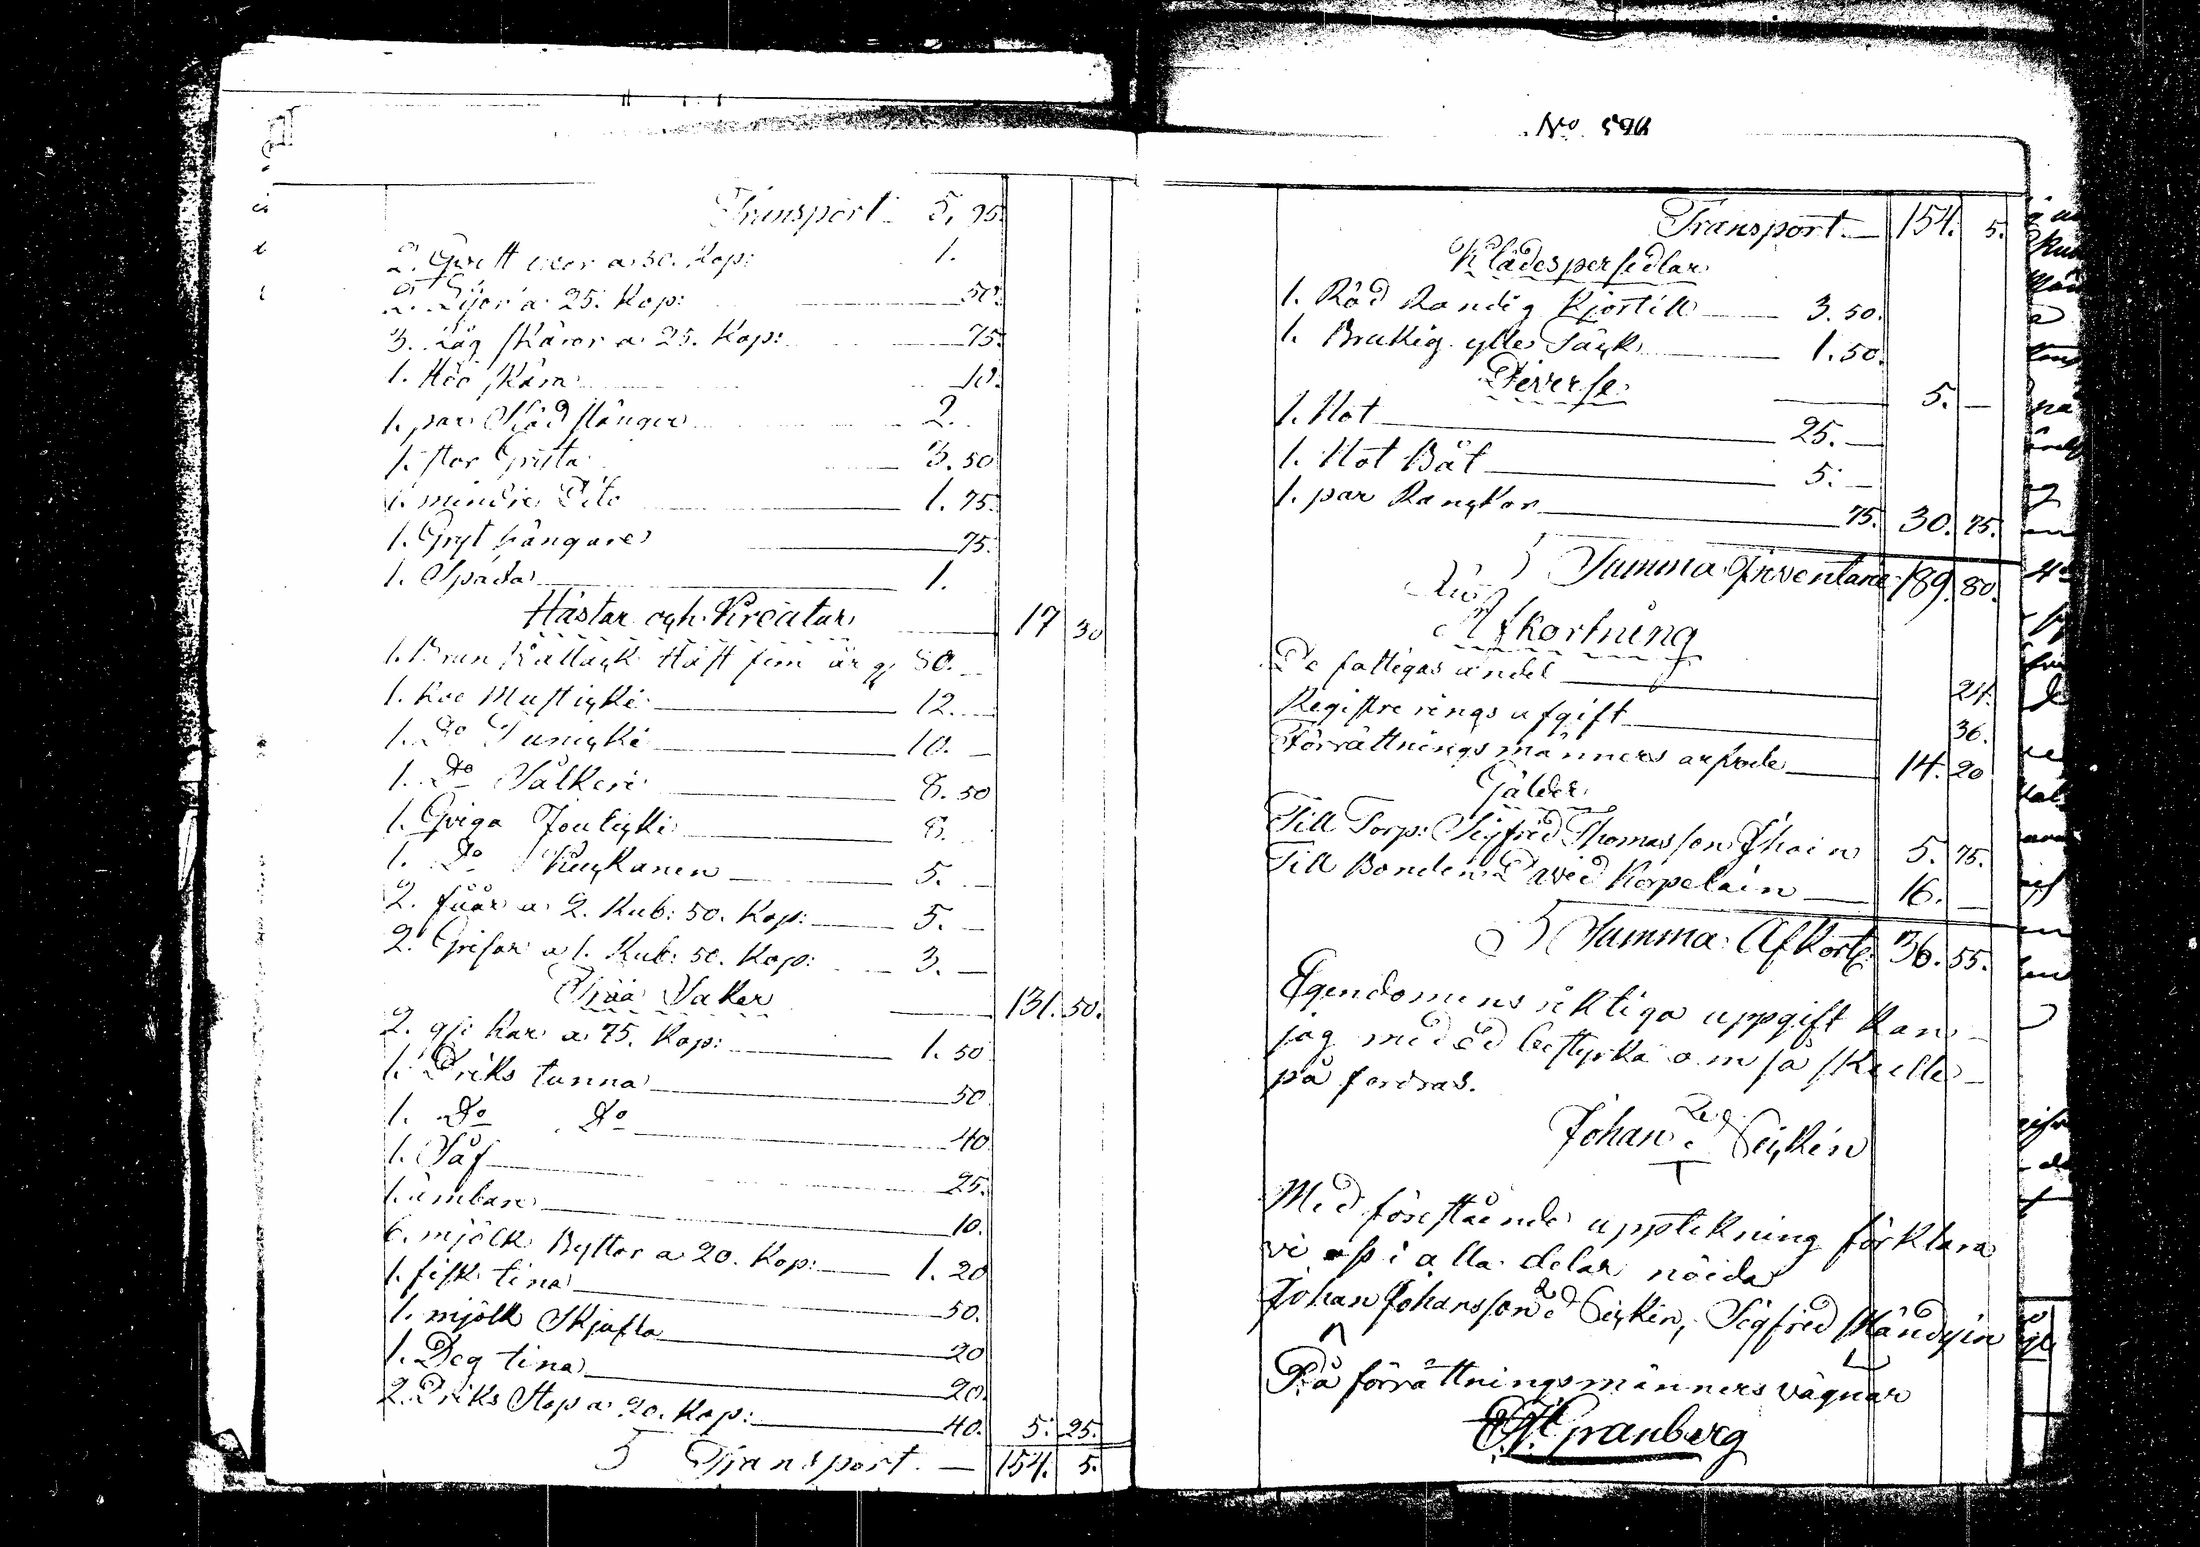 Transport 5. 95.
2. a 50. Kop: 1.
2. Lijor a 25. Kop: 50.
3. Såg skäror a 25. Kop: 75.
1. Höö skära 10.
1. par Stånger 2.
1. stor Gryta 3. 50
1. mindre Dito 1. 75.
1. Gryt hängare 75.
1. Spada 1.
Hästar och Kreatur 17 30
1. Brun Vallack Häst fem år g. 80. —
1. Koo Mustikki 12. —
1. Do Tunicki 10. —
1. Do Valkeri 8. 50
1. Qviga Jouticki 8. —
1. Do 5. —
2. fåår a 2. Rub: 50. Kop: 5. —
2. Grisar a 1. Rub: 50. Kop: 3. —
Trää Saker 131. 50.
2. Kar a 75. Kop: 1. 50
1. Driks tunna 50
1. Do Do 40
1. Såf 25.
1. ämbare 10.
6. mjölk Byttor a 20. Kop: 1. 20
1. fisk tina 50.
1. mjölk Skjufla 20
1. Deg tina 20.
2. Driks Stop a 20. Kop: 40. 5. 25.
Transport — 154. 5.
No 594
Transport — 154. 5.
Klädespersedlar
1. Röd Randig Kjortill 3. 50.
1. Brukig ylle Täck 1. 50.
Diverse 5. —
1. Not 25. —
1. Not Båt 5. —
1. par Ranckor 75. 30. 75.
Summa Inventarie 189. 80.
Afkortning
De fattigas andel 24.
Registrerings afgift 36.
Förrättningsmänners arfvode 14. 20
Gälder
Till Torp: Sigfred Thomasson Ihain 5. 75.
Till Bonden David Korpelain — 16. —
Summa Afkortg: 36. 55.
Egendomens riktiga uppgift kan
jag med ed bestyrka om så skulle
på fordras.
Johan Seickin
Med föreståënde upptekning förklara
vi oss i alla delar nöida
Johan Johansson Seickin, Sigfred
På förrättningsmänners vägnar
Granberg